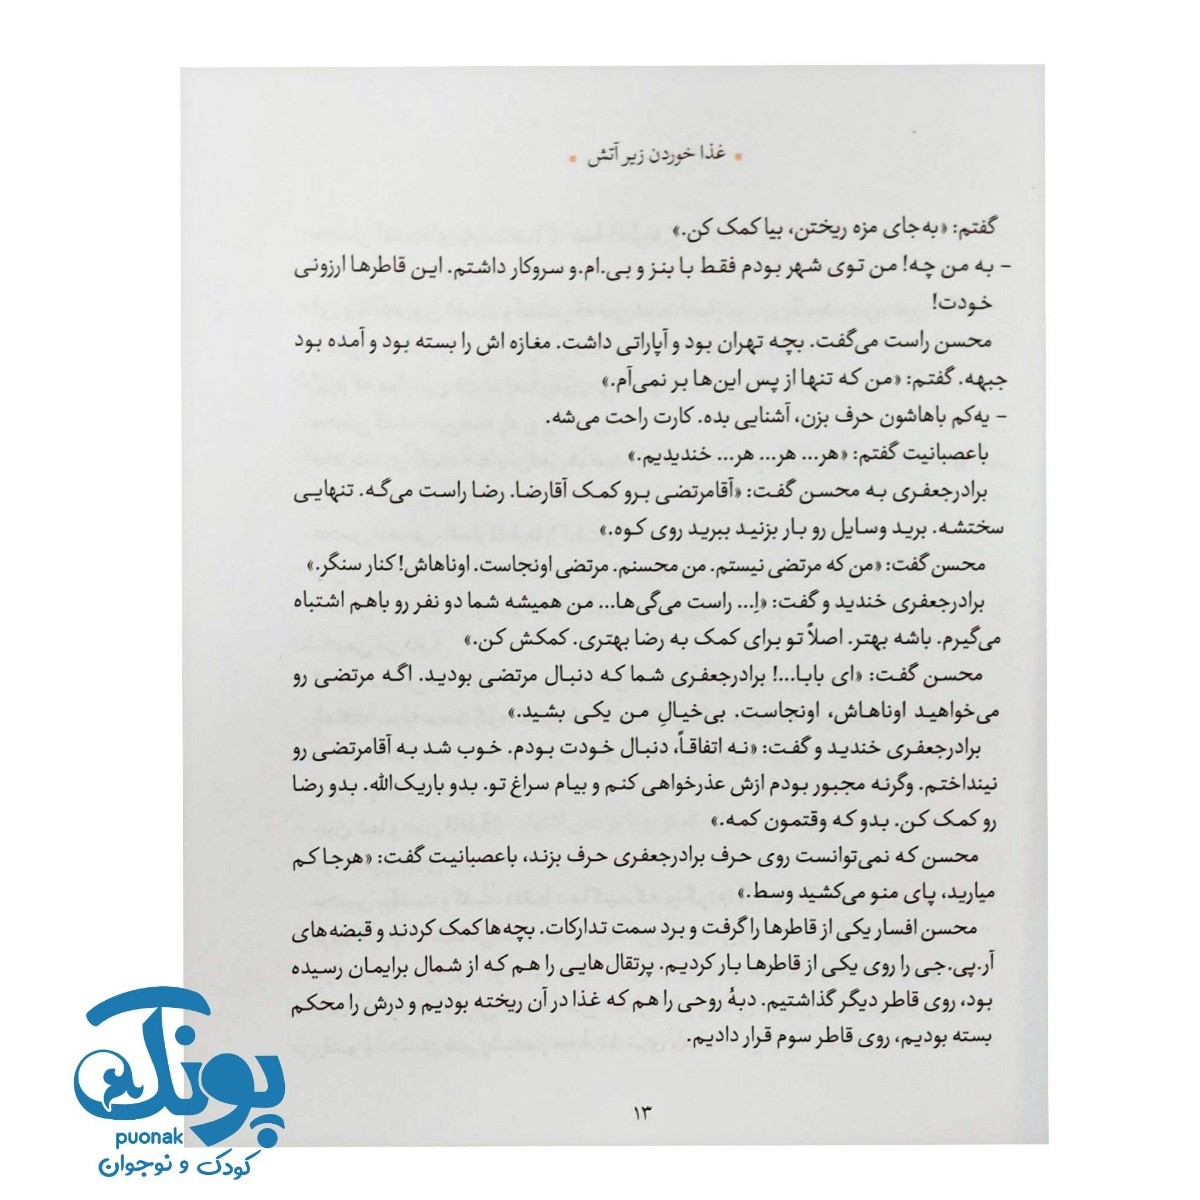 غذا خوردن زیر آتش
گفتم: «به‌جای مزه ریختن، بیا کمک کن.»
- به من چه! من توی شهر بودم فقط با بنز و بی.ام.و سروکار داشتم. این قاطرها ارزونی
خودت!
محسن راست می‌گفت. بچه تهران بود و آپاراتی داشت. مغازه اش را بسته بود و آمده بود
جبهه. گفتم: «من که تنها از پس این‌ها بر نمی‌آم.»
- یه‌کم باهاشون حرف بزن، آشنایی بده. کارت راحت می‌شه.
باعصبانیت گفتم: «هر... هر... هر... خندیدیم.»
برادرجعفری به محسن گفت: «آقامرتضی برو کمک آقارضا. رضا راست می‌گه. تنهایی
سختشه. برید وسایل رو بار بزنید ببرید روی کوه.»
محسن گفت: «من که مرتضی نیستم. من محسنم. مرتضی اونجاست. اوناهاش! کنار سنگر.»
برادرجعفری خندید و گفت: «اِ... راست می‌گی‌ها... من همیشه شما دو نفر رو باهم اشتباه
می‌گیرم. باشه بهتر. اصلاً تو برای کمک به رضا بهتری. کمکش کن.»
محسن گفت: «ای بابا...! برادرجعفری شما که دنبال مرتضی بودید. اگه مرتضی رو
می‌خواهید اوناهاش، اونجاست. بی‌خیالِ من یکی بشید.»
برادرجعفری خندید و گفت: «نه اتفاقاً، دنبال خودت بودم. خوب شد به آقامرتضی رو
نینداختم. وگرنه مجبور بودم ازش عذرخواهی کنم و بیام سراغ تو. بدو باریک‌الله. بدو رضا
رو کمک کن. بدو که وقتمون کمه.»
محسن که نمی‌توانست روی حرف برادرجعفری حرف بزند، باعصبانیت گفت: «هرجا کم
میارید، پای منو می‌کشید وسط.»
محسن افسار یکی از قاطرها را گرفت و برد سمت تدارکات. بچه‌ها کمک کردند و قبضه‌های
آر.پی.جی را روی یکی از قاطرها بار کردیم. پرتقال‌هایی را هم که از شمال برایمان رسیده
بود، روی قاطر دیگر گذاشتیم. دبهٔ روحی را هم که غذا در آن ریخته بودیم و درش را محکم
بسته بودیم، روی قاطر سوم قرار دادیم.
۱۳
پونک
puonak
کودک و نوجوان